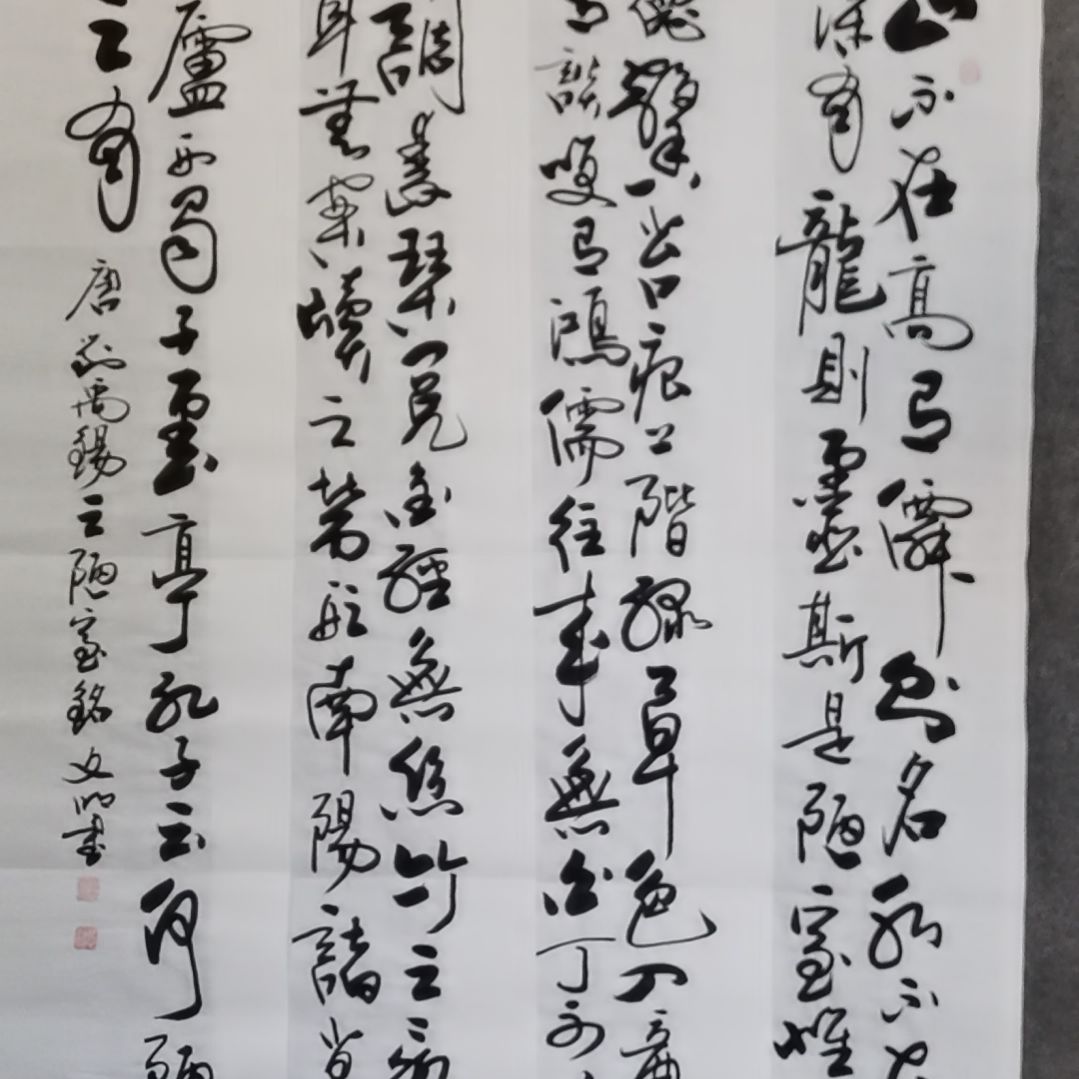 山不在高有僊則名水不在
深有龍則靈斯是陋室惟
馨苔痕上階綠草色入簾
青談笑有鴻儒往來無白丁可
調素琴閱金經無絲竹之亂
耳無案牘之勞形南陽諸葛
廬西蜀子雲亭孔子云何陋
之有 唐劉禹錫之陋室銘 文明書